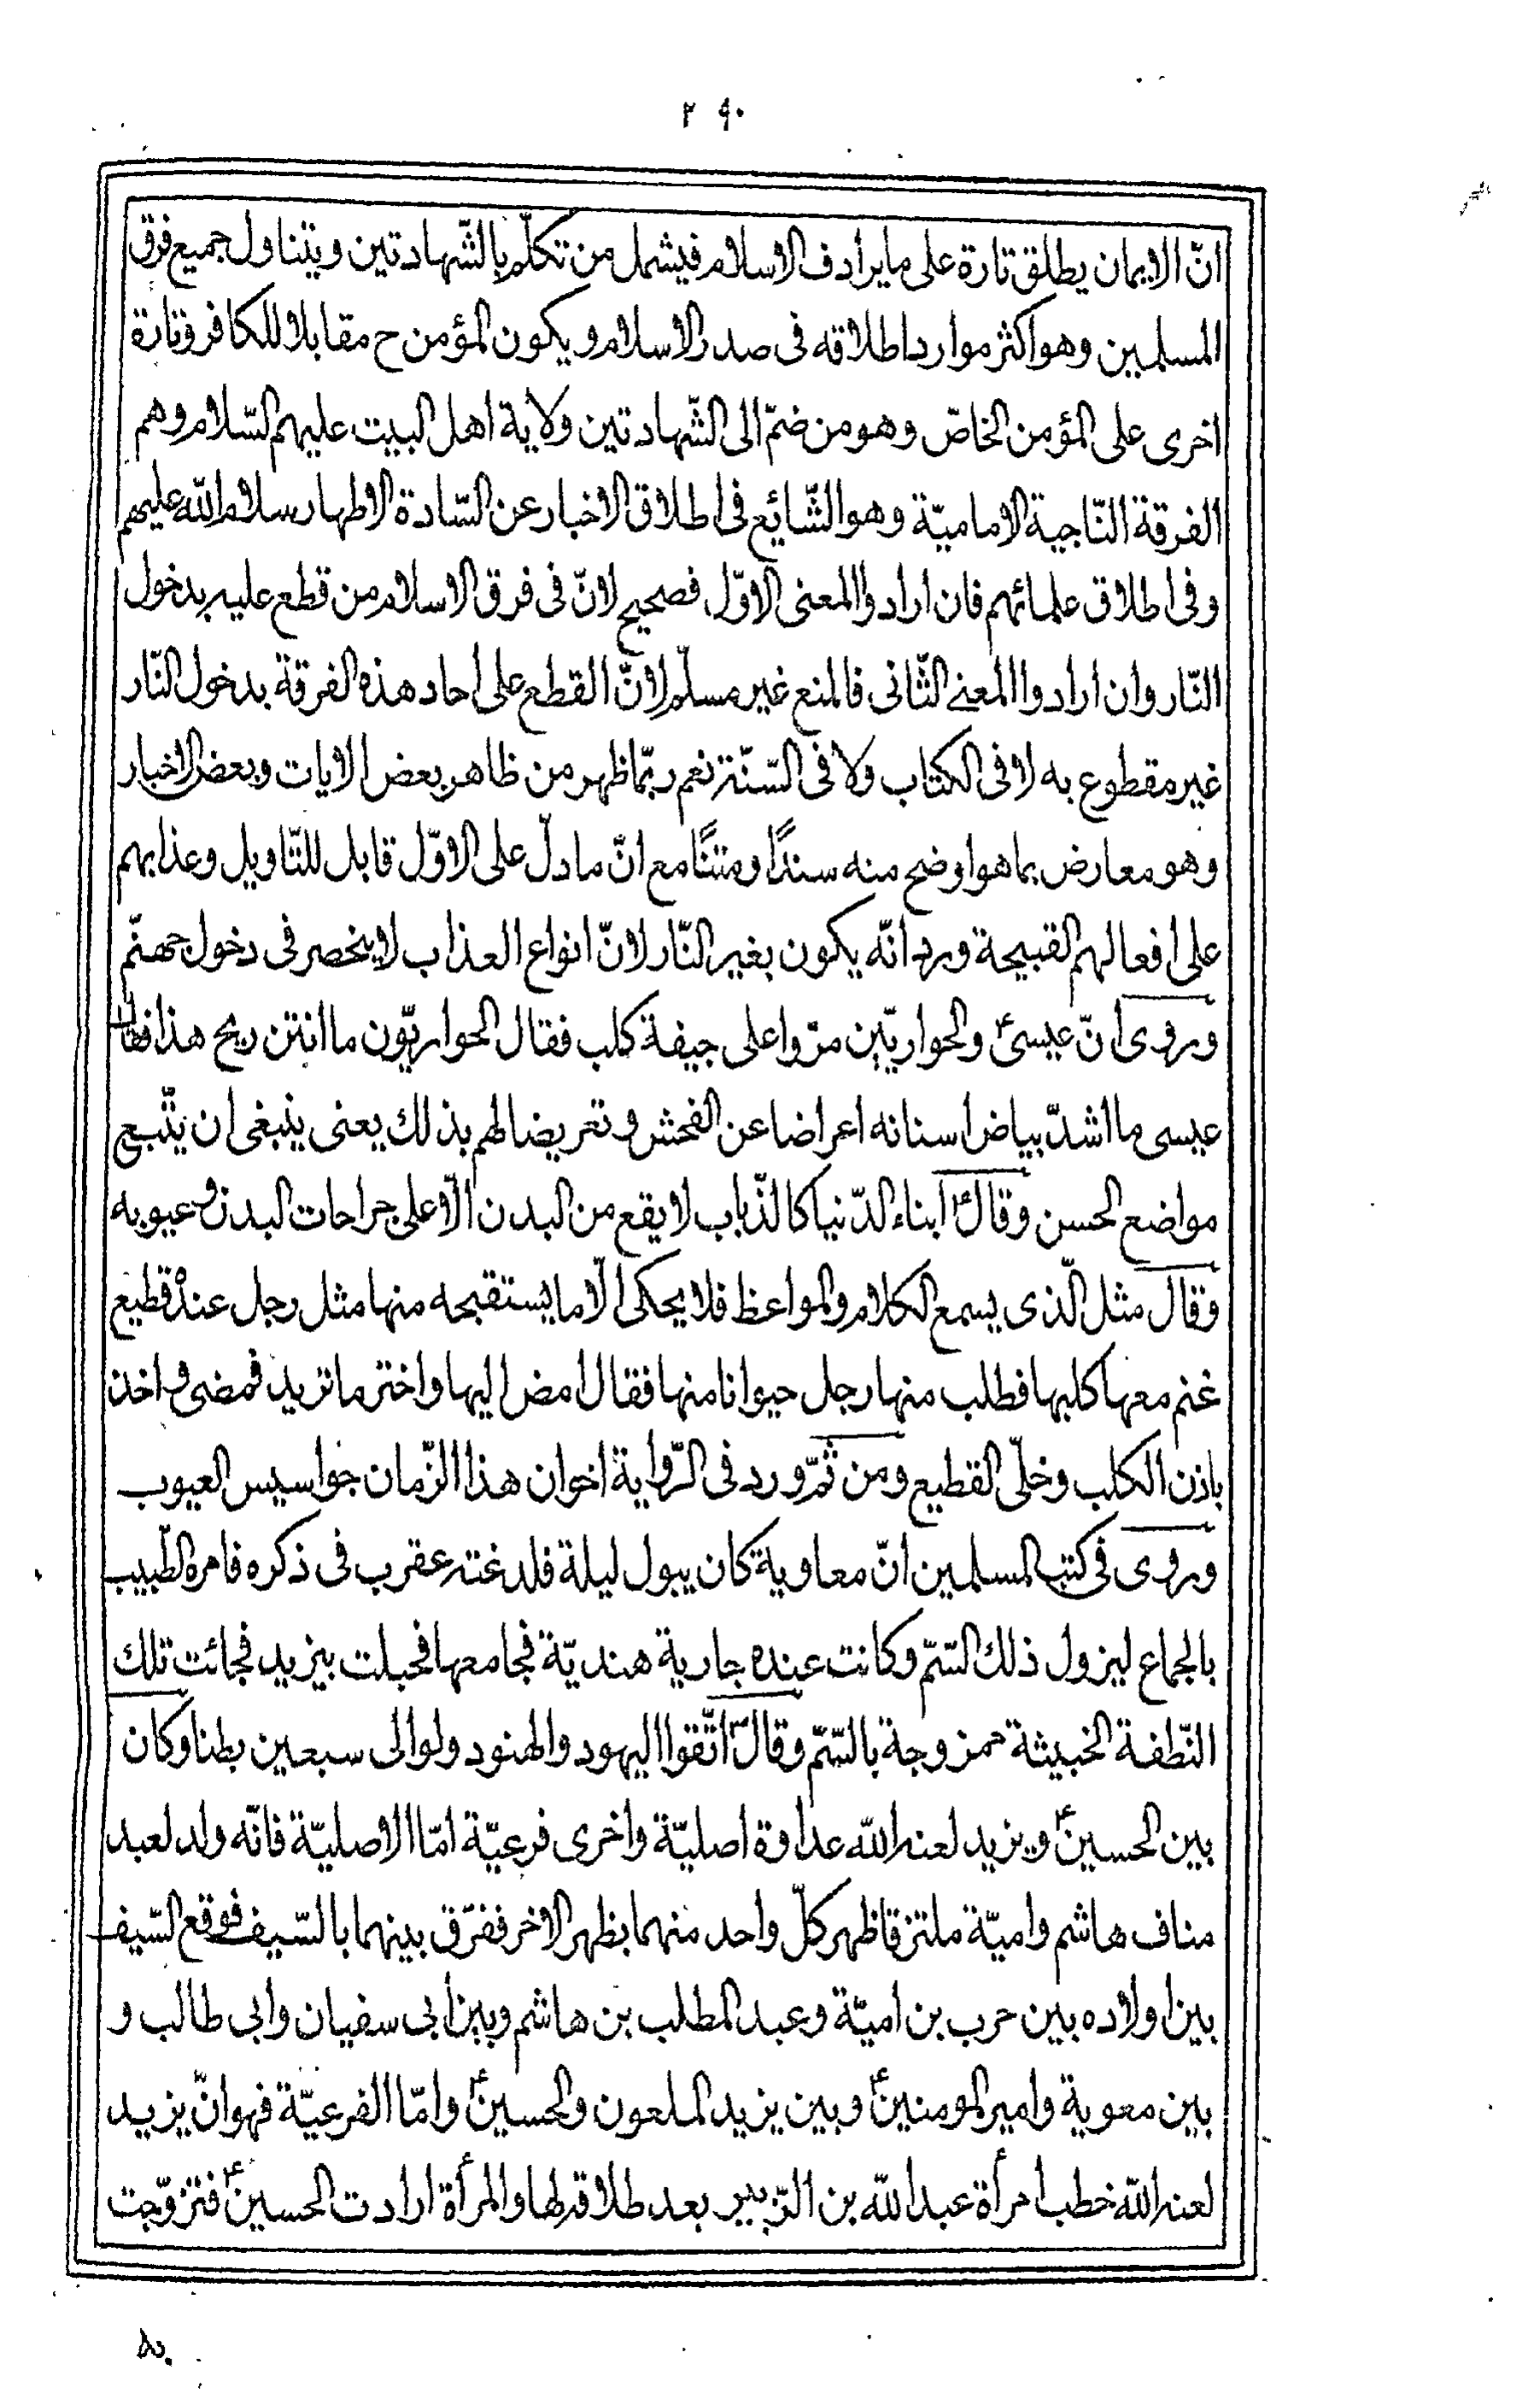 ۲۹۰
انّ الايمان يطلق تارة على ما يرادف الاسلام فيشمل من تكلّم بالشّهادتين ويتناول جميع فرق
المسلمين وهو اكثر موارد اطلاقه فى صدر الاسلام ويكون المؤمن ح مقابلا للكافر وتارة
اخرى على المؤمن الخاصّ وهو من ضمّ الى الشّهادتين ولاية اهل البيت عليهم السّلام وهم
الفرقة النّاجية الاماميّة وهو الشّائع فى اطلاق الاخبار عن السّادة الاطهار سلام الله عليهم
وفى اطلاق علمائهم فان ارادوا المعنى الاوّل فصحيح لانّ فى فرق الاسلام من قطع عليه بدخول
النّار وان ارادوا المعنى الثّانى فالمنع غير مسلّم لانّ القطع على احاد هذه الفرقة بدخول النّار
غير مقطوع به لا فى الكتاب ولا فى السّنّة نعم ربّما ظهر من ظاهر بعض الايات وبعض الاخبار
وهو معارض بما هو اوضح منه سندًا ومتنًا مع انّ ما دلّ على الاوّل قابل للتّاويل وعذابهم
على افعالهم القبيحة ورد انّه يكون بغير النّار لانّ انواع العذاب لا ينحصر فى دخول جهنّم
وروى انّ عيسىؑ والحواريّين مرّوا على جيفة كلب فقال الحواريّون ما انتن ريح هذا فقال
عيسى ما اشدّ بياض اسنانه اعراضا عن الفحش وتعريضا لهم بذلك يعنى ينبغى ان يتّبع
مواضع الحسن وقالؑ ابناء الدّنيا كالذّباب لا يقع من البدن الّا على جراحات البدن وعيوبه
وقال مثل الّذى يسمع الكلام والمواعظ فلا يحكى الّا ما يستقبحه منها مثل رجل عنده قطيع
غنم معها كلبها فطلب منها رجل حيوانا منها فقال امض اليها واختر ما تريد فمضى واخذ
باذن الكلب وخلّى القطيع ومن ثمّ ورد فى الرّواية اخوان هذا الزّمان جواسيس العيوب
وروى فى كتب المسلمين انّ معاوية كان يبول ليلة فلدغته عقرب فى ذكره فامره الطّبيب
بالجماع ليزول ذلك السّمّ وكانت عنده جارية هنديّة فجامعها فحبلت بيزيد فجائت تلك
النّطفة الخبيثة ممزوجة بالسّمّ وقالؐ اتّقوا اليهود والهنود ولو الى سبعين بطنا وكان
بين الحسينؑ ويزيد لعنه الله عداوة اصليّة واخرى فرعيّة امّا الاصليّة فانّه ولد لعبد
مناف هاشم واميّة ملتزقا ظهر كلّ واحد منهما بظهر الاخر ففرّق بينهما بالسّيف فوقع السّيف
بين اولاده بين حرب بن اميّة وعبد المطلب بن هاشم وبين ابى سفيان وابى طالب و
بين معوية وامير المومنينؑ وبين يزيد الملعون والحسينؑ وامّا الفرعيّة فهو انّ يزيد
لعنه الله خطب امرأة عبد الله بن الزّبير بعد طلاقه لها والمرأة ارادت الحسينؑ فتزوّجت